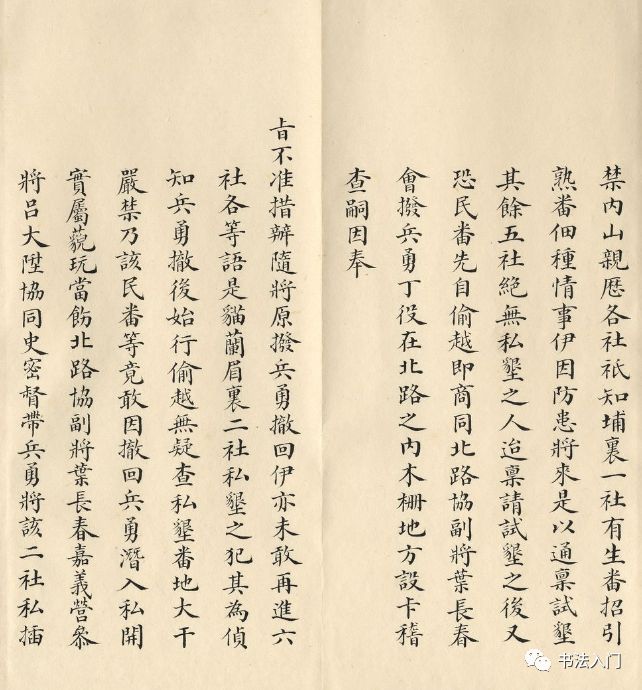 禁内山親歷各社祇知埔裏一社有生番招引
熟番佃種情事伊因防患將來是以通稟試墾
其餘五社絕無私墾之人迨稟請試墾之後又
恐民番先自偷越即商同北路協副將葉長春
會撥兵勇丁役在北路之内木栅地方設卡稽
查嗣因奉
旨不准措辦隨將原撥兵勇撤回伊亦未敢再進六
社各等語是貓蘭眉裏二社私墾之犯其為偵
知兵勇撤後始行偷越無疑查私墾番地大干
嚴禁乃該民番等竟敢因撤回兵勇潛入私開
實屬藐玩當飭北路協副將葉長春嘉義營叅
將呂大陞協同史密督帶兵勇將該二社私插
书法入门